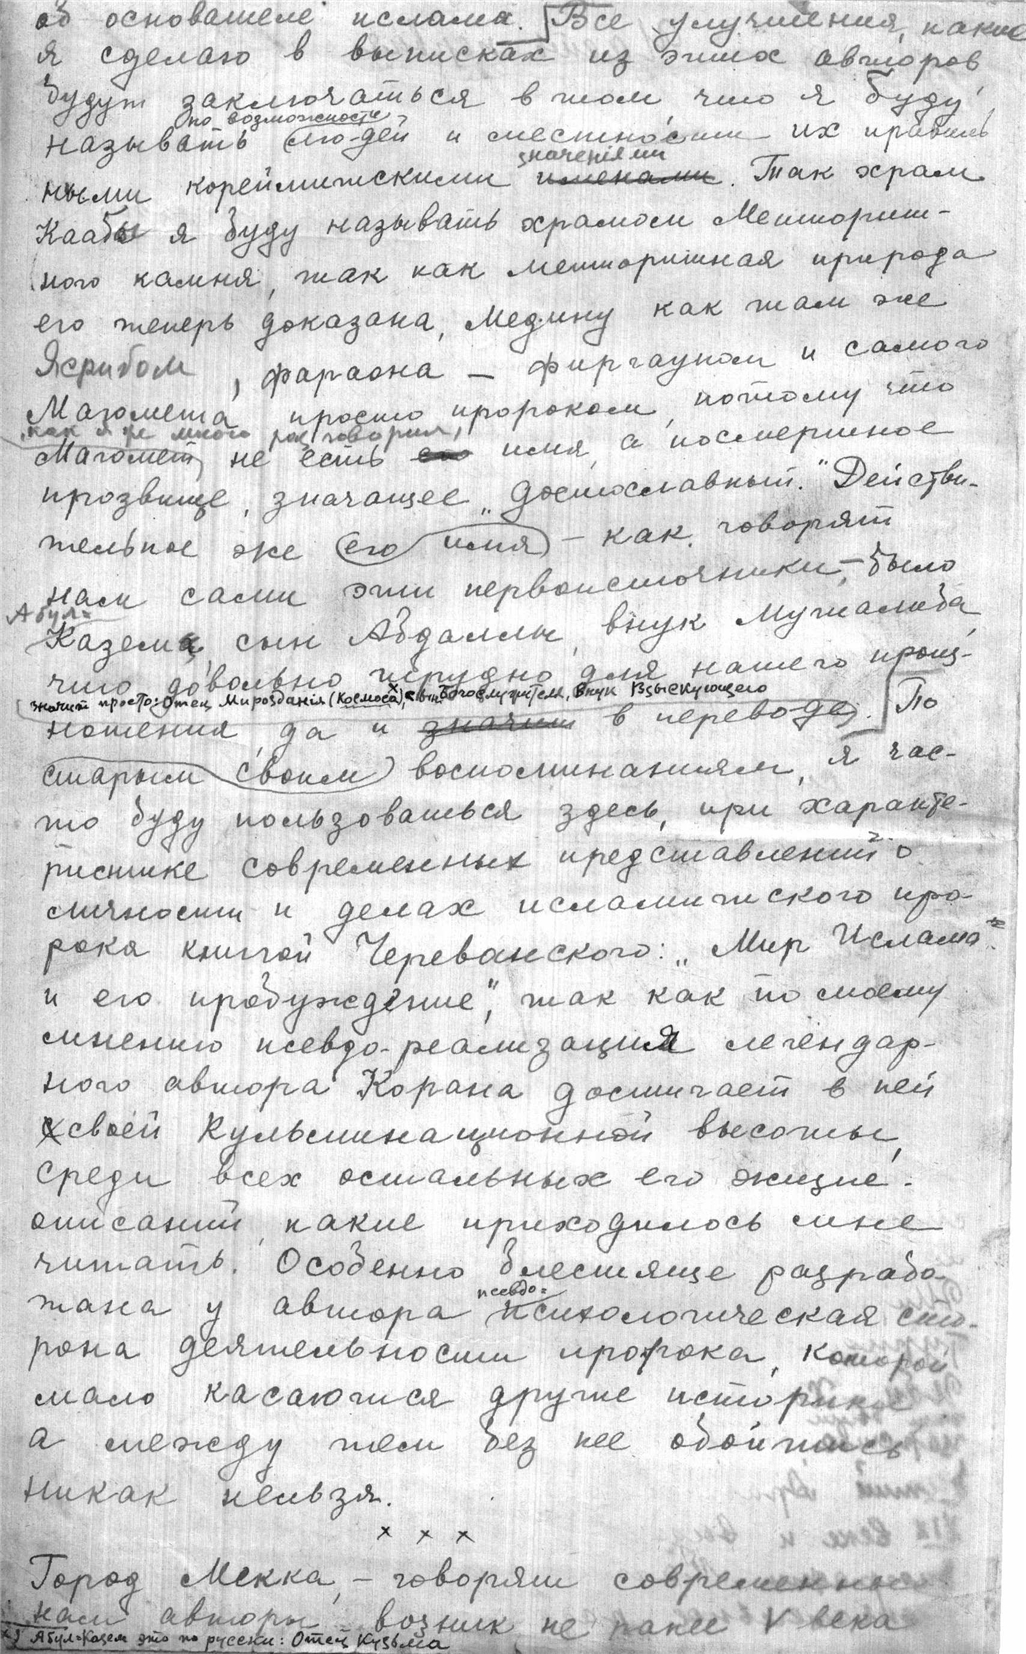 об основателе ислама. Все улучшения, какие
я сделаю в выписках из этих авторов
будут заключаться в том что я буду
по возможности
называть людей и местности их правиль
значенiями
ными корейшитскими именами. Так храм
Каабы я буду называть храмом Метеорит-
ного камня, так как метеоритная природа
его теперь доказана, Медину как там же
Ясрибом, фараона – фиргауном и самого
Магомета просто пророком, потому что
как я уже много раз говорил,
Магомет не есть его имя, а посмертное
прозвище, значащее „Достославный." Действи-
тельное же его имя – как говорят
нам сами эти первоисточники, – было
Абул=
Казем, сын Абдаллы, внук Муталиба,
что довольно трудно для нашего произ-
значит просто: Отец Мирозданiя (Космоса)x, сын Богослужителя, внук Взыскующего
ношения, да и значит в переводе. По
старым своим воспоминаниям, я час-
то буду пользоваться здесь, при характе-
ристике современных представлений о
личности и делах исламитского про-
рока книгой Череванского: „Мир Ислама
и его пробуждение", так как по моему
мнению псевдо-реализация легендар-
ного автора Корана достигает в ней
своей кульминационной высоты,
среди всех остальных его жизне-
описаний, какие приходилось мне
читать. Особенно блестяще разрабо-
псевдо=
тана у автора психологическая сто-
рона деятельности пророка, которой
мало касаются другие историки
а между тем без нее обойтись
никак нельзя.
x x x
Город Мекка, – говорят современные
нам авторы, возник не ранее V века
x) Абул=Казем это по русски: Отец Кузьма